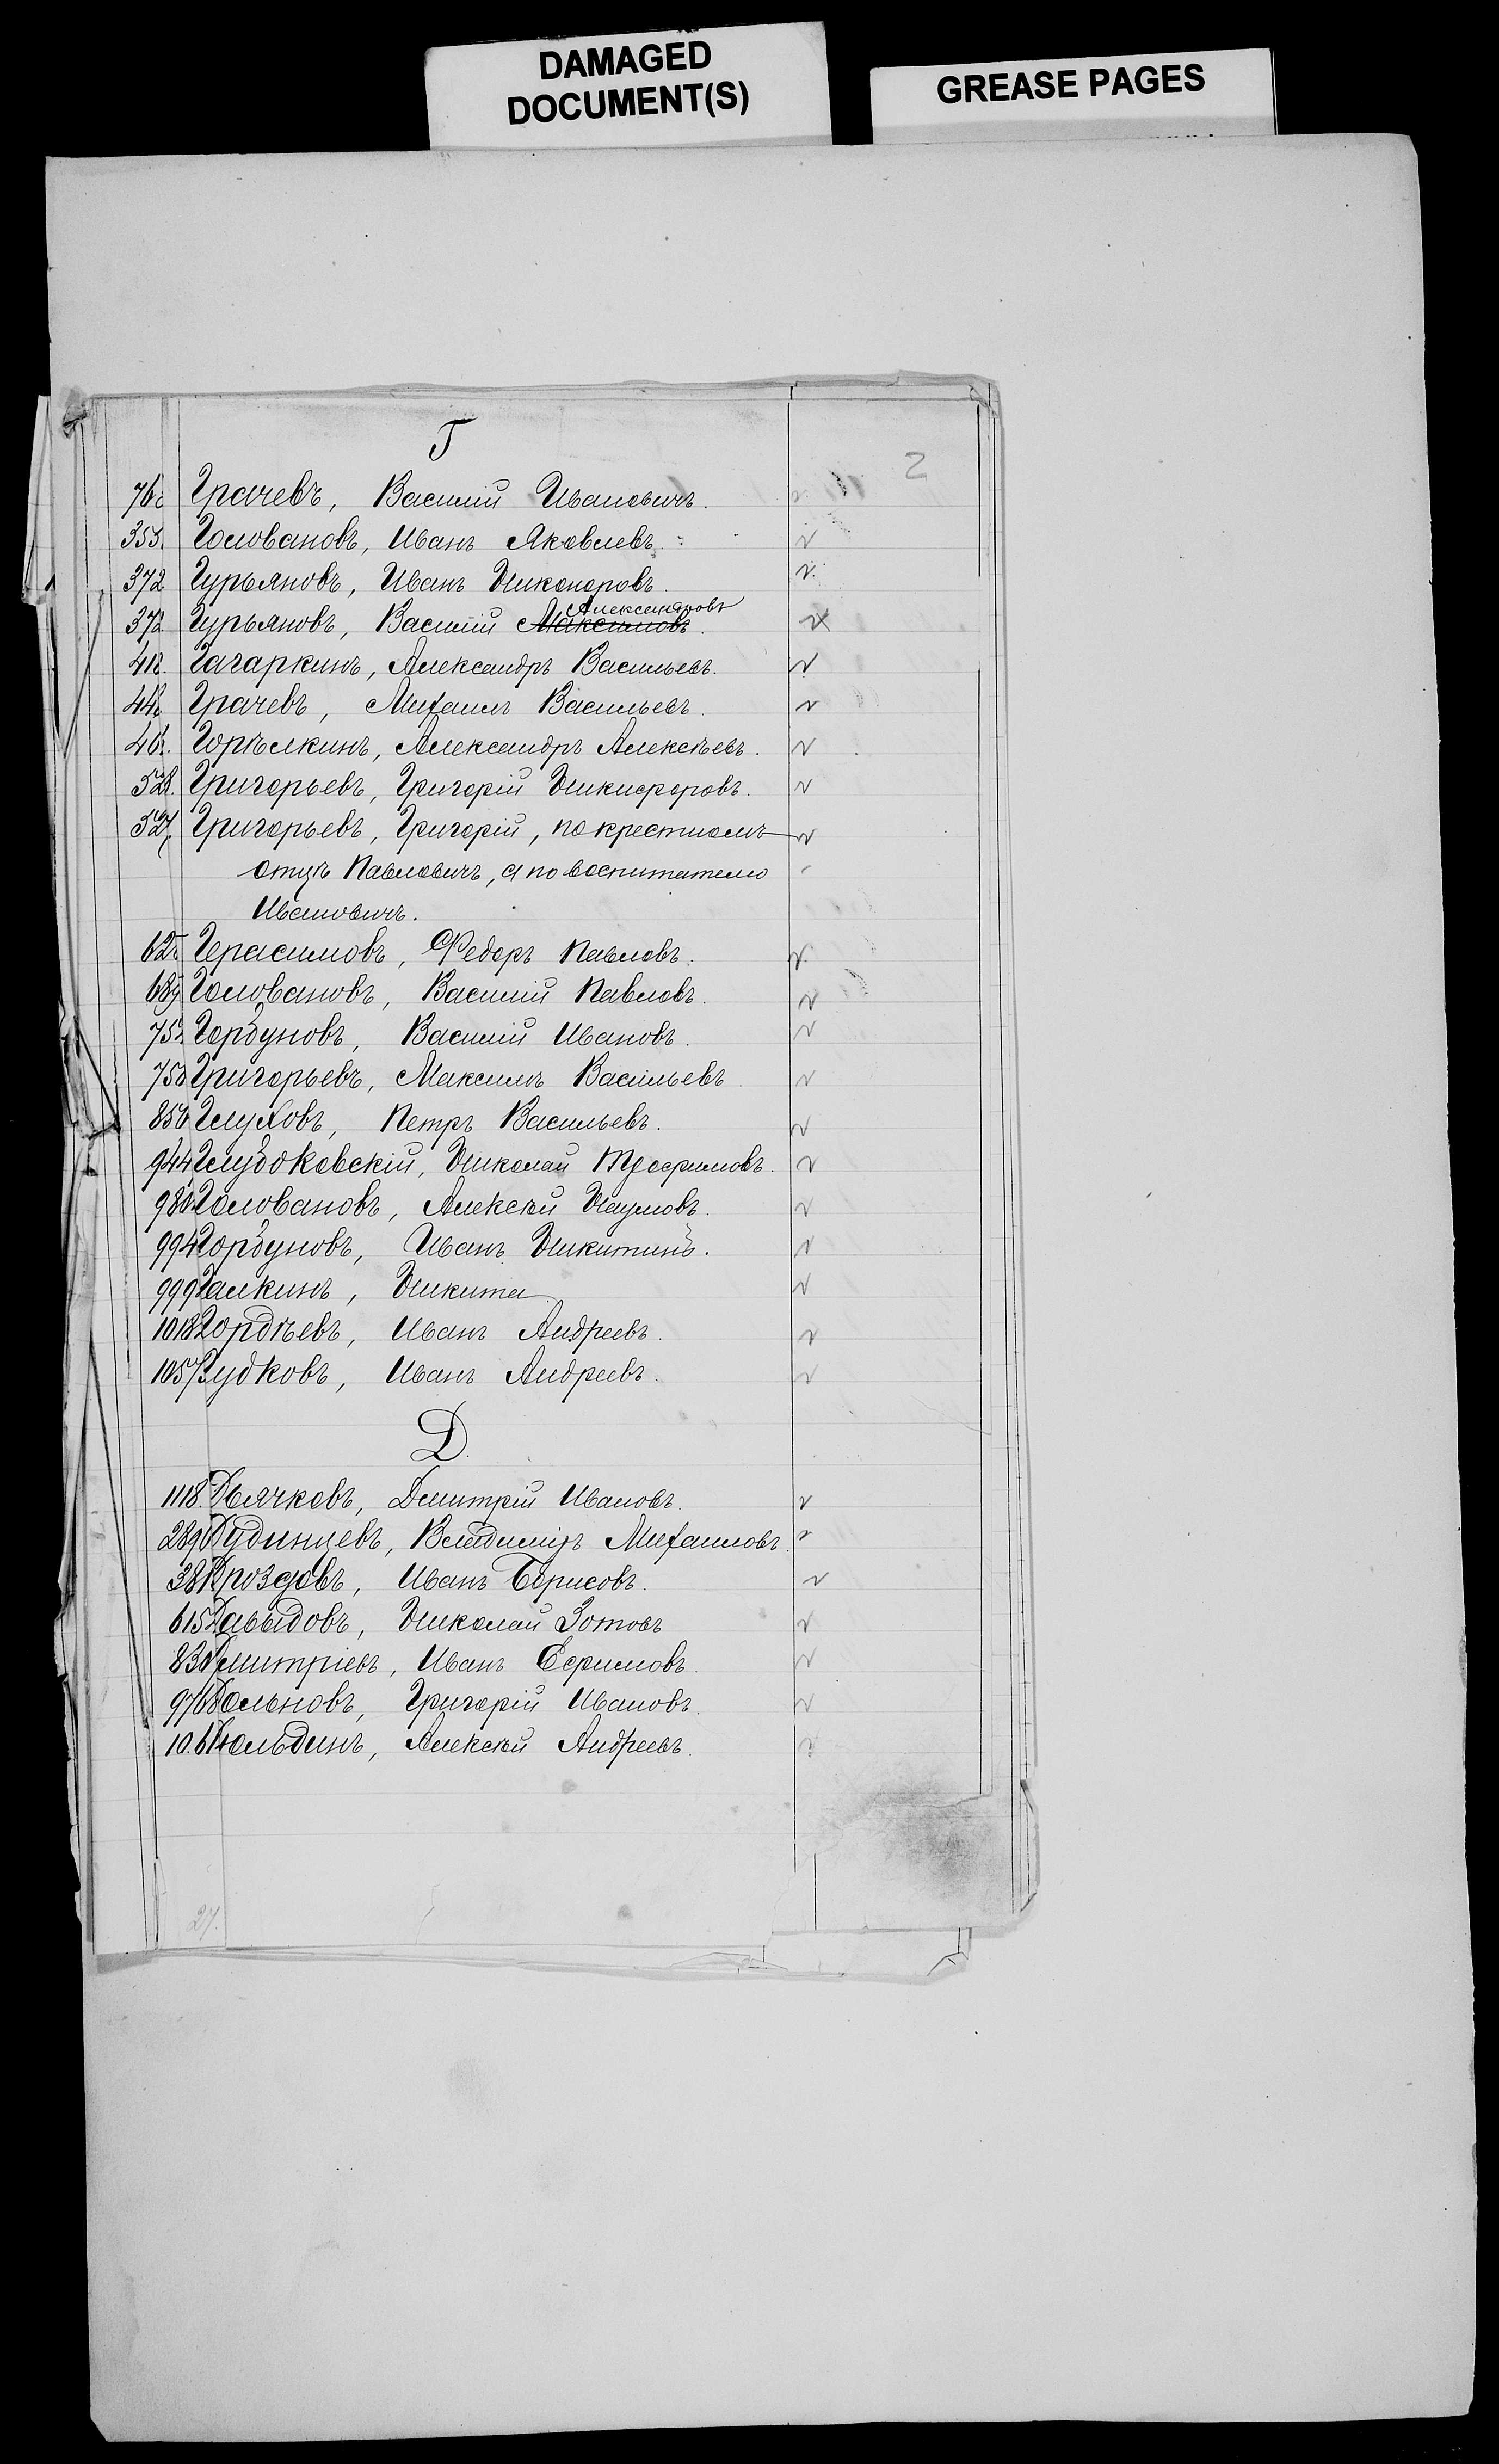 DAMAGED
DOCUMENT(S)
GREASE PAGES
Г
2
Грачевъ, Василій Ивановичъ.
353. Головановъ, Иванъ Яковлевъ.
372 Гурьяновъ, Иванъ Никоноровъ.
Александровъ
372 Гурьяновъ, Василій Максимовъ.
Гагаркинъ, Александръ Васильевъ.
Грачевъ, Михаилъ Васильевъ.
Горѣлкинъ, Александръ Алексѣевъ.
528. Григорьевъ, Григорій Никифоровъ.
527 Григорьевъ, Григорій, по крестномъ
отцѣ Павловичъ, а по воспитателю
Ивановичъ.
Герасимовъ, Федоръ Павловъ.
689 Головановъ, Василій Павловъ.
Горбуновъ, Василій Ивановъ.
Григорьевъ, Максимъ Васильевъ
856 Глуховъ, Петръ Васильевъ.
944 Глубоковскій, Николай Трофимовъ.
980 Головановъ, Алексѣй Наумовъ.
994 Горбуновъ, Иванъ Никитинъ.
999 Галкинъ, Никита
1018 Гордѣевъ, Иванъ Андреевъ.
1057 Гудковъ, Иванъ Андреевъ.
Д.
1118. Дьячковъ, Дмитрій Ивановъ.
289 Дудинцевъ, Владиміръ Михаиловъ.
381 Дроздовъ, Иванъ Борисовъ.
615 Давыдовъ, Николай Зотовъ
830 Дмитріевъ, Иванъ Ефимовъ.
976 Дольновъ, Григорій Ивановъ.
Дюльдинъ, Алексѣй Андреевъ.
27.